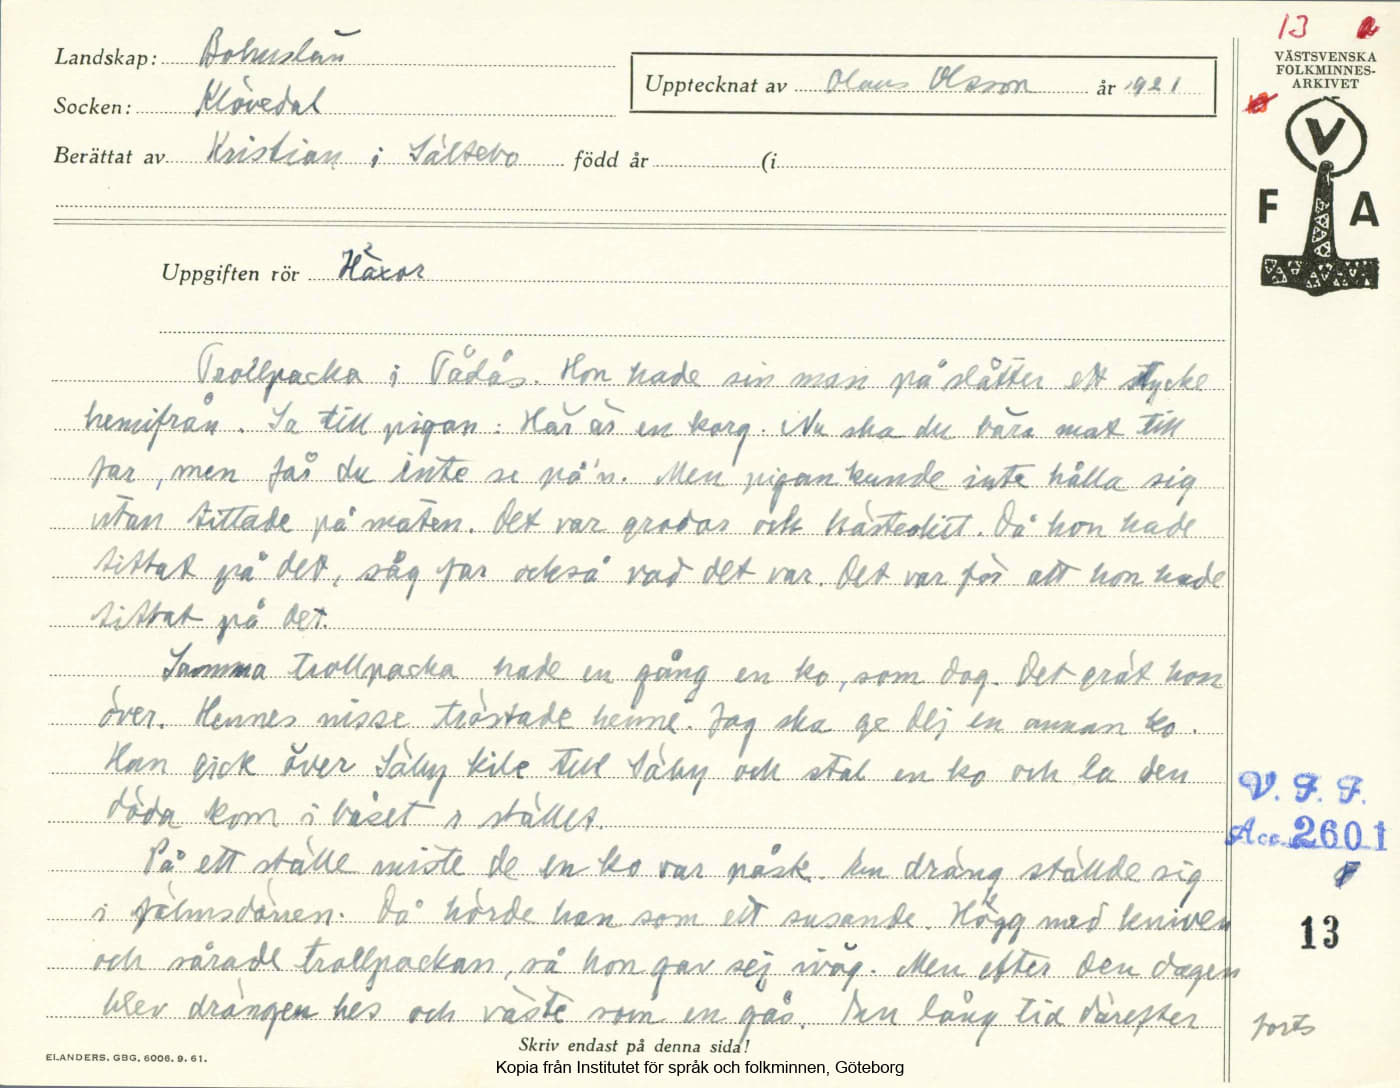 13
VÄSTSVENSKA
FOLKMINNES-
ARKIVET
V
F A
Landskap: Bohuslän
Socken: Klövedal
Upptecknat av Olaus Olsson år 1921
Berättat av Kristian i Sältebo född år (i
Uppgiften rör Häxor
Trollpacka i Tådås. Hon hade sin man på slåtter ett stycke
hemifrån. Sa till pigan: Här är en korg. Nu ska du bära mat till
far, men får du inte se på'n. Men pigan kunde inte hålla sig
utan tittade på maten. Det var grodor och hästskit. Då hon hade
tittat på det, såg far också vad det var. Det var för att hon hade
tittat på det.
Samma trollpacka hade en gång en ko, som dog. Det grät hon
över. Hennes nisse tröstade henne. Jag ska ge dej en annan ko.
Han gick över Säby kile till Säby och stal en ko och la den
döda kom i båset i stället.
På ett ställe miste de en ko var påsk. En dräng ställde sig
i fälmsdörren. Då hörde han som ett susande. Högg med kniven
och sårade trollpackan, så hon gav sej iväg. Men efter den dagen
blev drängen hes och väste som en gås. En lång tid därefter
forts
V. F. F.
Acc. 2601
13
ELANDERS, GBG, 6006. 9. 61.
Skriv endast på denna sida!
Kopia från Institutet för språk och folkminnen, Göteborg